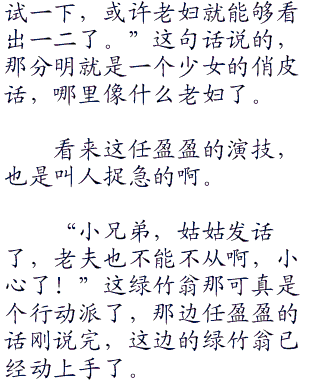 试一下，或许老妇就能够看
出一二了。”这句话说的，
那分明就是一个少女的俏皮
话，哪里像什么老妇了。
看来这任盈盈的演技，
也是叫人捉急的啊。
“小兄弟，姑姑发话
了，老夫也不能不从啊，小
心了！”这绿竹翁那可真是
个行动派了，那边任盈盈的
话刚说完，这边的绿竹翁已
经动上手了。